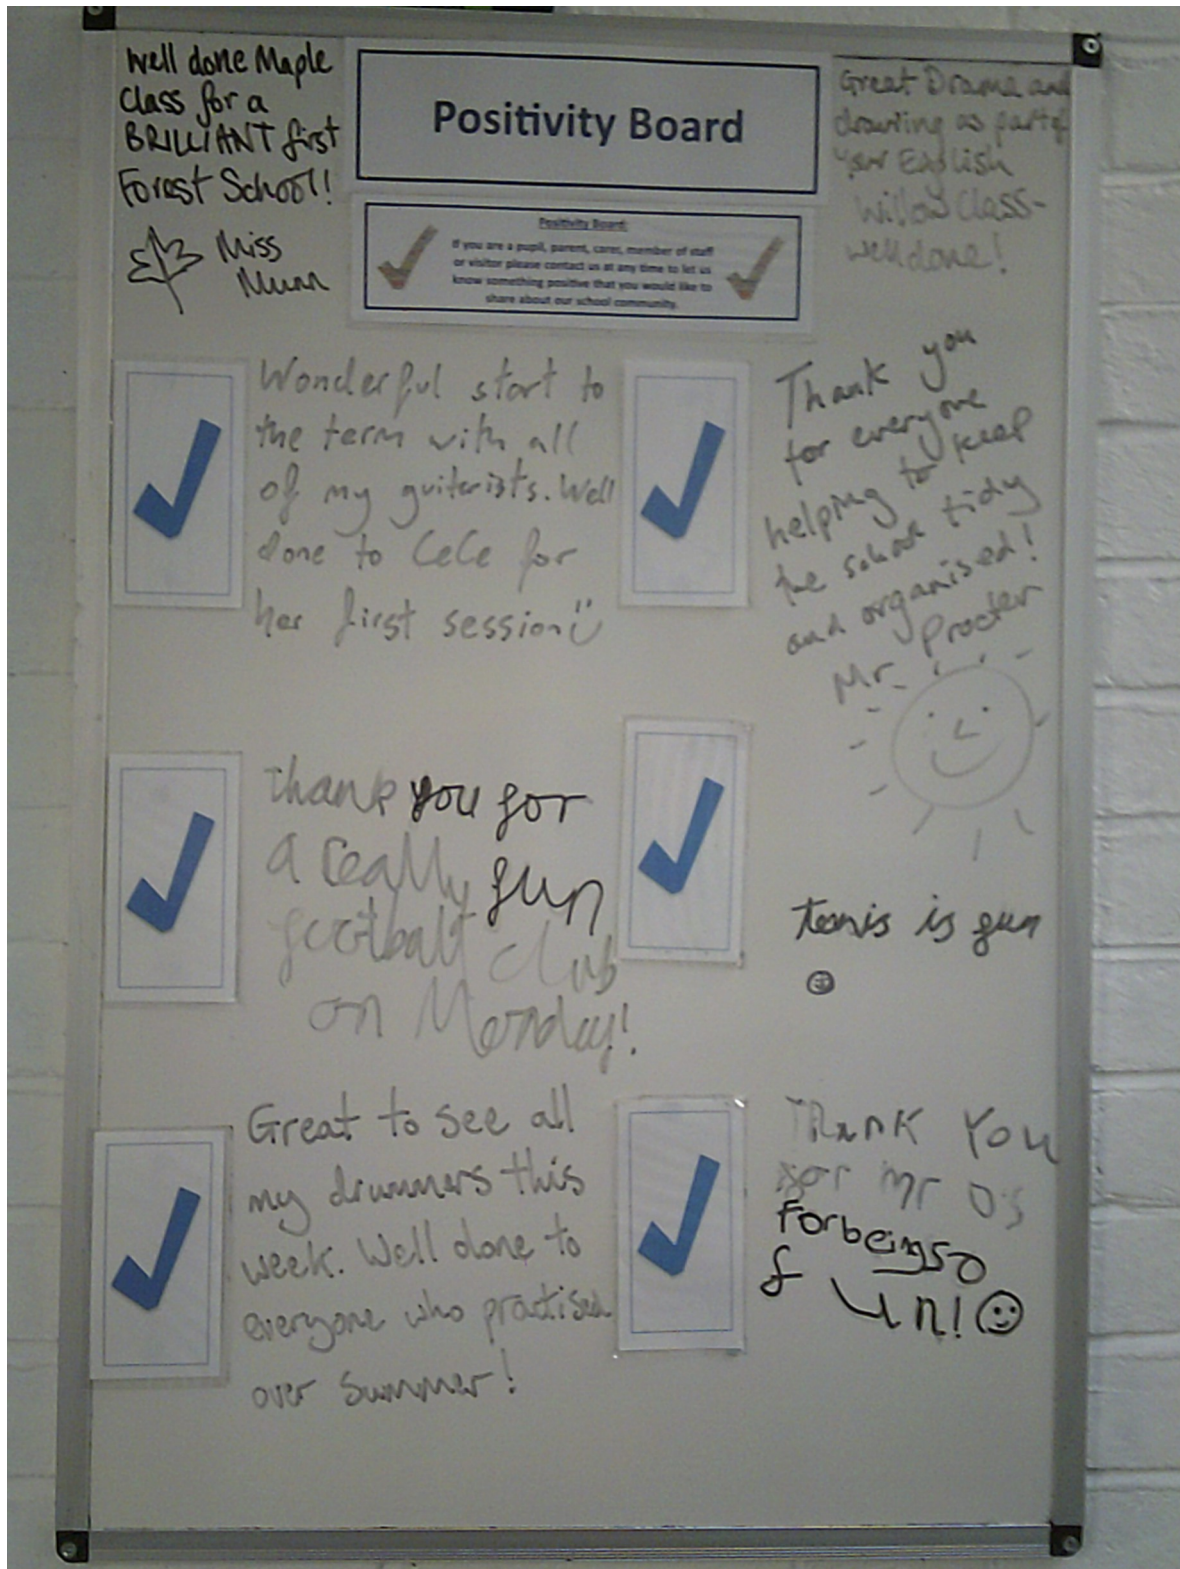 Well done Maple
Class for a
BRILLIANT first
Forest School!
Miss
Munn
Positivity Board
Positivity Board:
If you are a pupil, parent, carer, member of staff
or visitor please contact us at any time to let us
know something positive that you would like to
share about our school community.
Great Drama and
drawing as part of
your English
Willow Class-
well done!
Wonderful start to
the term with all
of my guiterists. Well
done to CeCe for
her first session
Thank you
for everyone
helping to keep
the school tidy
and organised!
Mr. Procter
Thank you for
a really fun
football club
on Monday!
tennis is fun
Great to see all
my drummers this
week. Well done to
everyone who practised
over summer!
Thank You
for mr Os
For being so
fun!